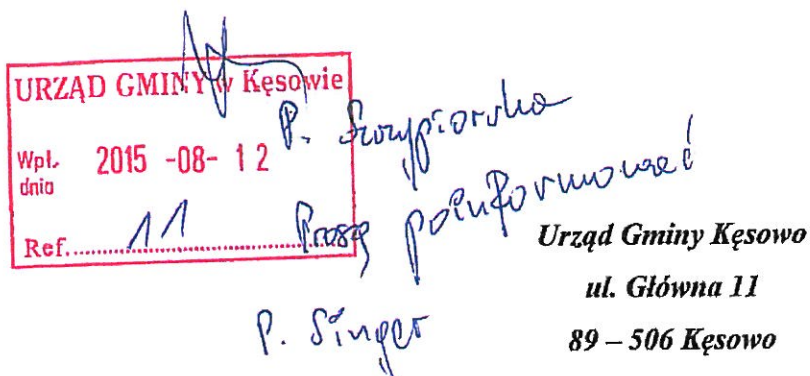 URZĄD GMINY w Kęsowie
Wpł. dnia 2015 -08- 12
Ref. 11
P. Szczypiorska
Proszę poinformować
P. Singer
Urząd Gminy Kęsowo
ul. Główna 11
89 – 506 Kęsowo